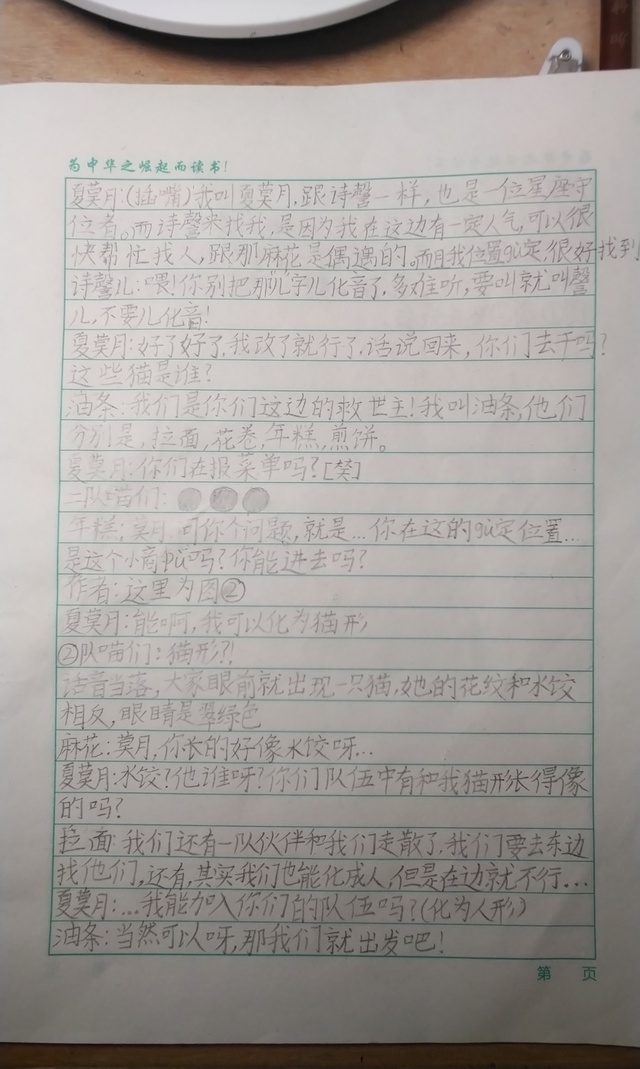 为中华之崛起而读书!
夏莫月:(插嘴)我叫夏莫月,跟诗馨一样,也是一位星座守
位者。而诗馨来找我,是因为我在这边有一定人气,可以很
快帮忙找人,跟那麻花是偶遇的。而且我位置gù定,很好找到
诗馨儿:喂!你别把那"儿"字儿化音了,多难听,要叫就叫馨
儿,不要儿化音!
夏莫月:好了好了,我改了就行了,话说回来,你们去干吗?
这些猫是谁?
油条:我们是你们这边的救世主!我叫油条,他们
分别是,拉面,花卷,年糕,煎饼。
夏莫月:你们在报菜单吗?[笑]
二队喵们:
年糕:莫月,问你个问题,就是...你在这的gù定位置...
是这个小商pù吗?你能进去吗?
作者:这里为图②
夏莫月:能啊,我可以化为猫形
②队喵们:猫形?!
话音当落,大家眼前就出现一只猫,她的花纹和水饺
相反,眼睛是翠绿色
麻花:莫月,你长的好像水饺呀...
夏莫月:水饺?他谁呀?你们队伍中有和我猫形长得像
的吗?
拉面:我们还有一队伙伴和我们走散了,我们要去东边
找他们,还有,其实我们也能化成人,但是在边就不行...
夏莫月:...我能加入你们的队伍吗?(化为人形)
油条:当然可以呀,那我们就出发吧!
第 页